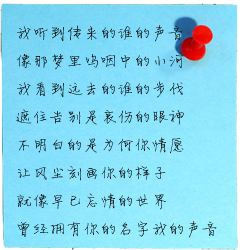 我听到传来的谁的声音
像那梦里呜咽中的小河
我看到远去的谁的步伐
遮住告别是哀伤的眼神
不明白的是为何你情愿
让风尘刻画你的样子
就像早已忘情的世界
曾经拥有你的名字我的声音